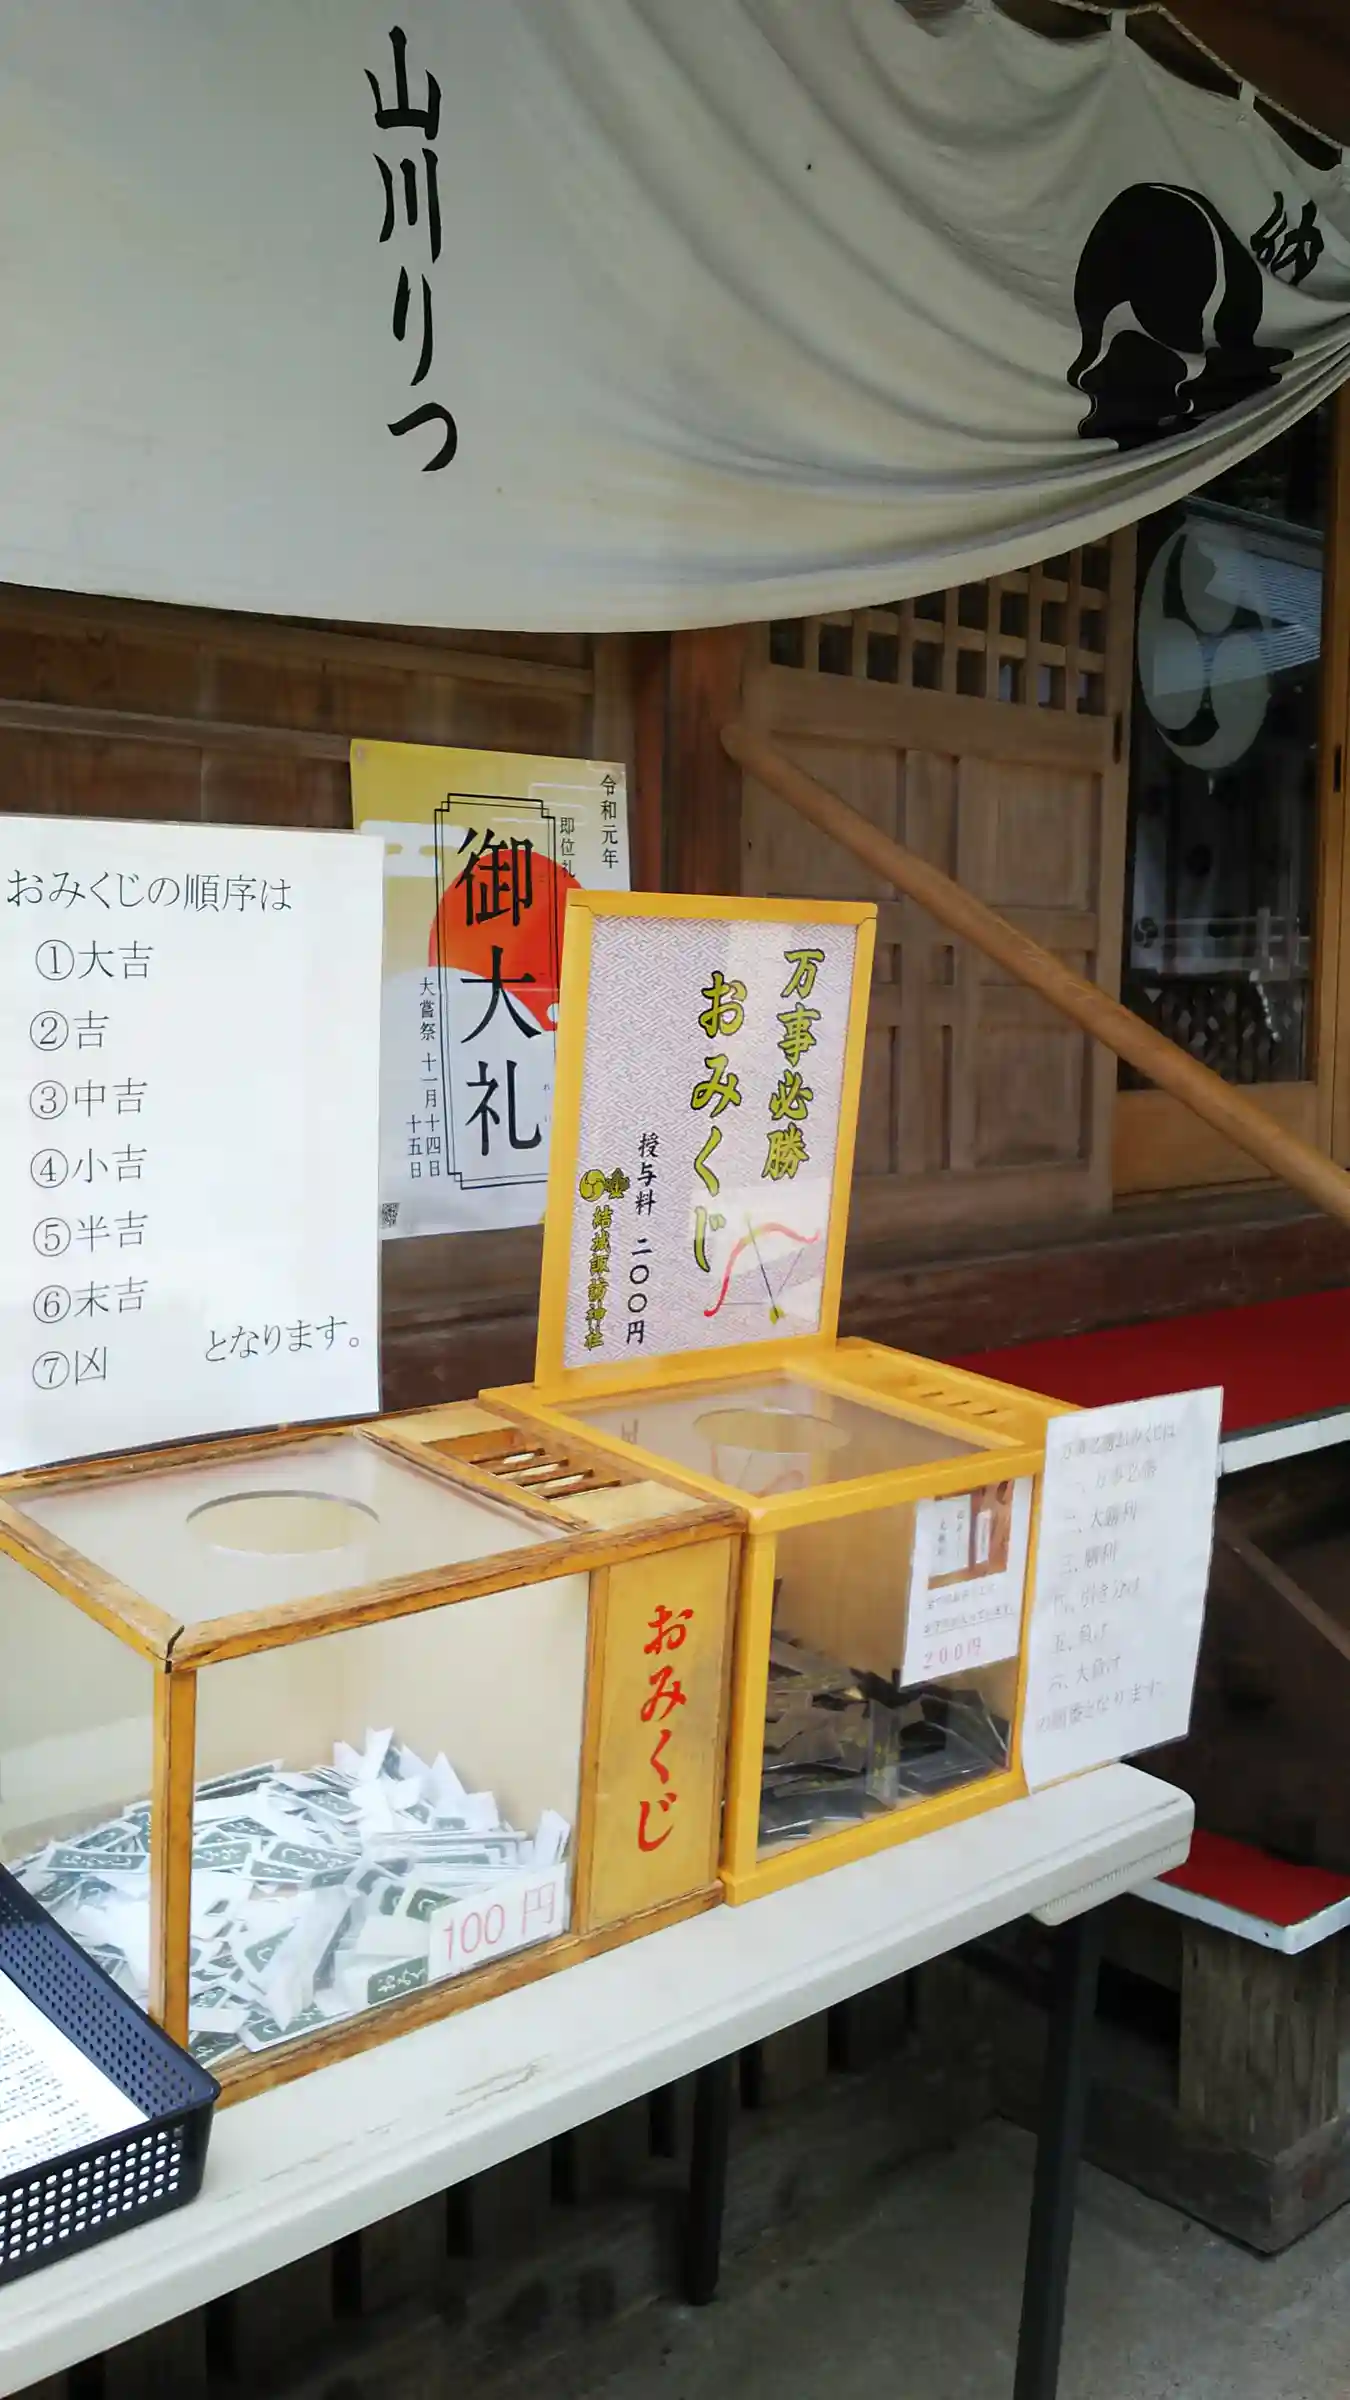 山川りつ
納
おみくじの順序は
①大吉
②吉
③中吉
④小吉
⑤半吉
⑥末吉
⑦凶
となります。
令和元年
即位礼
御大礼
大嘗祭 十一月十四日
十五日
万事必勝
おみくじ
授与料 二〇〇円
結城諏訪神社
おみくじ
100 円
200円
万事必勝おみくじは
一、万事必勝
二、大勝利
三、勝利
四、引き分け
五、負け
六、大負け
の順番となります